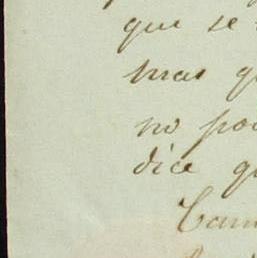 que se
mas q
no po
dice q
Cam